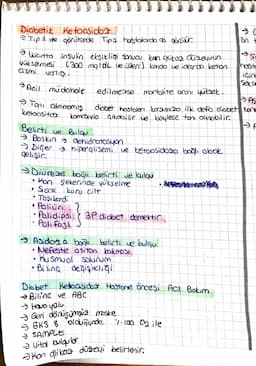 Diabetik Ketoasidoz
→ Tip 1 de görülürse Tip 2 hastalarda da görülür.
→ Vücutta insulin eksikliği sonucu kan glikoz düzeyinin
yükselmesi (300 mg/dL ve üzeri) kanda ve idrarda keton
cismi varlığı.
→ Acil müdahale edilmezse mortalite oranı yüksek.
→ Tanı almamış diabet hastaları ilk defa diabet
ketoasidoz komasıyla gelebilir ve böylece tanı alınabilir.
Belirti ve Bulgu
→ Baskın → dehidratasyon
→ Diğer → hiperglisemi ve ketoasidoza bağlı olarak
gelişir.
→ Diürez bağlı belirti ve bulgu
• Kan şekerinde yükselme
• Sıcak kuru cilt
• Taşikardi
• Poliüri
• Polidipsi 3P diabet demektir.
• Polifaji
→ Asidoza bağlı belirti ve bulgu
• Nefeste aseton kokusu
• Kusmaul solunum
• Bilinç değişikliği
Diabet Ketoasidoz Hastane Öncesi Acil Bakım
→ Bilinç ve ABC
→ Hava yolu
→ Geri dönüşümsüz maske
→ SAMPLE
→ Vital bulgular
→ Kan glikoz düzeyi belirlenir.